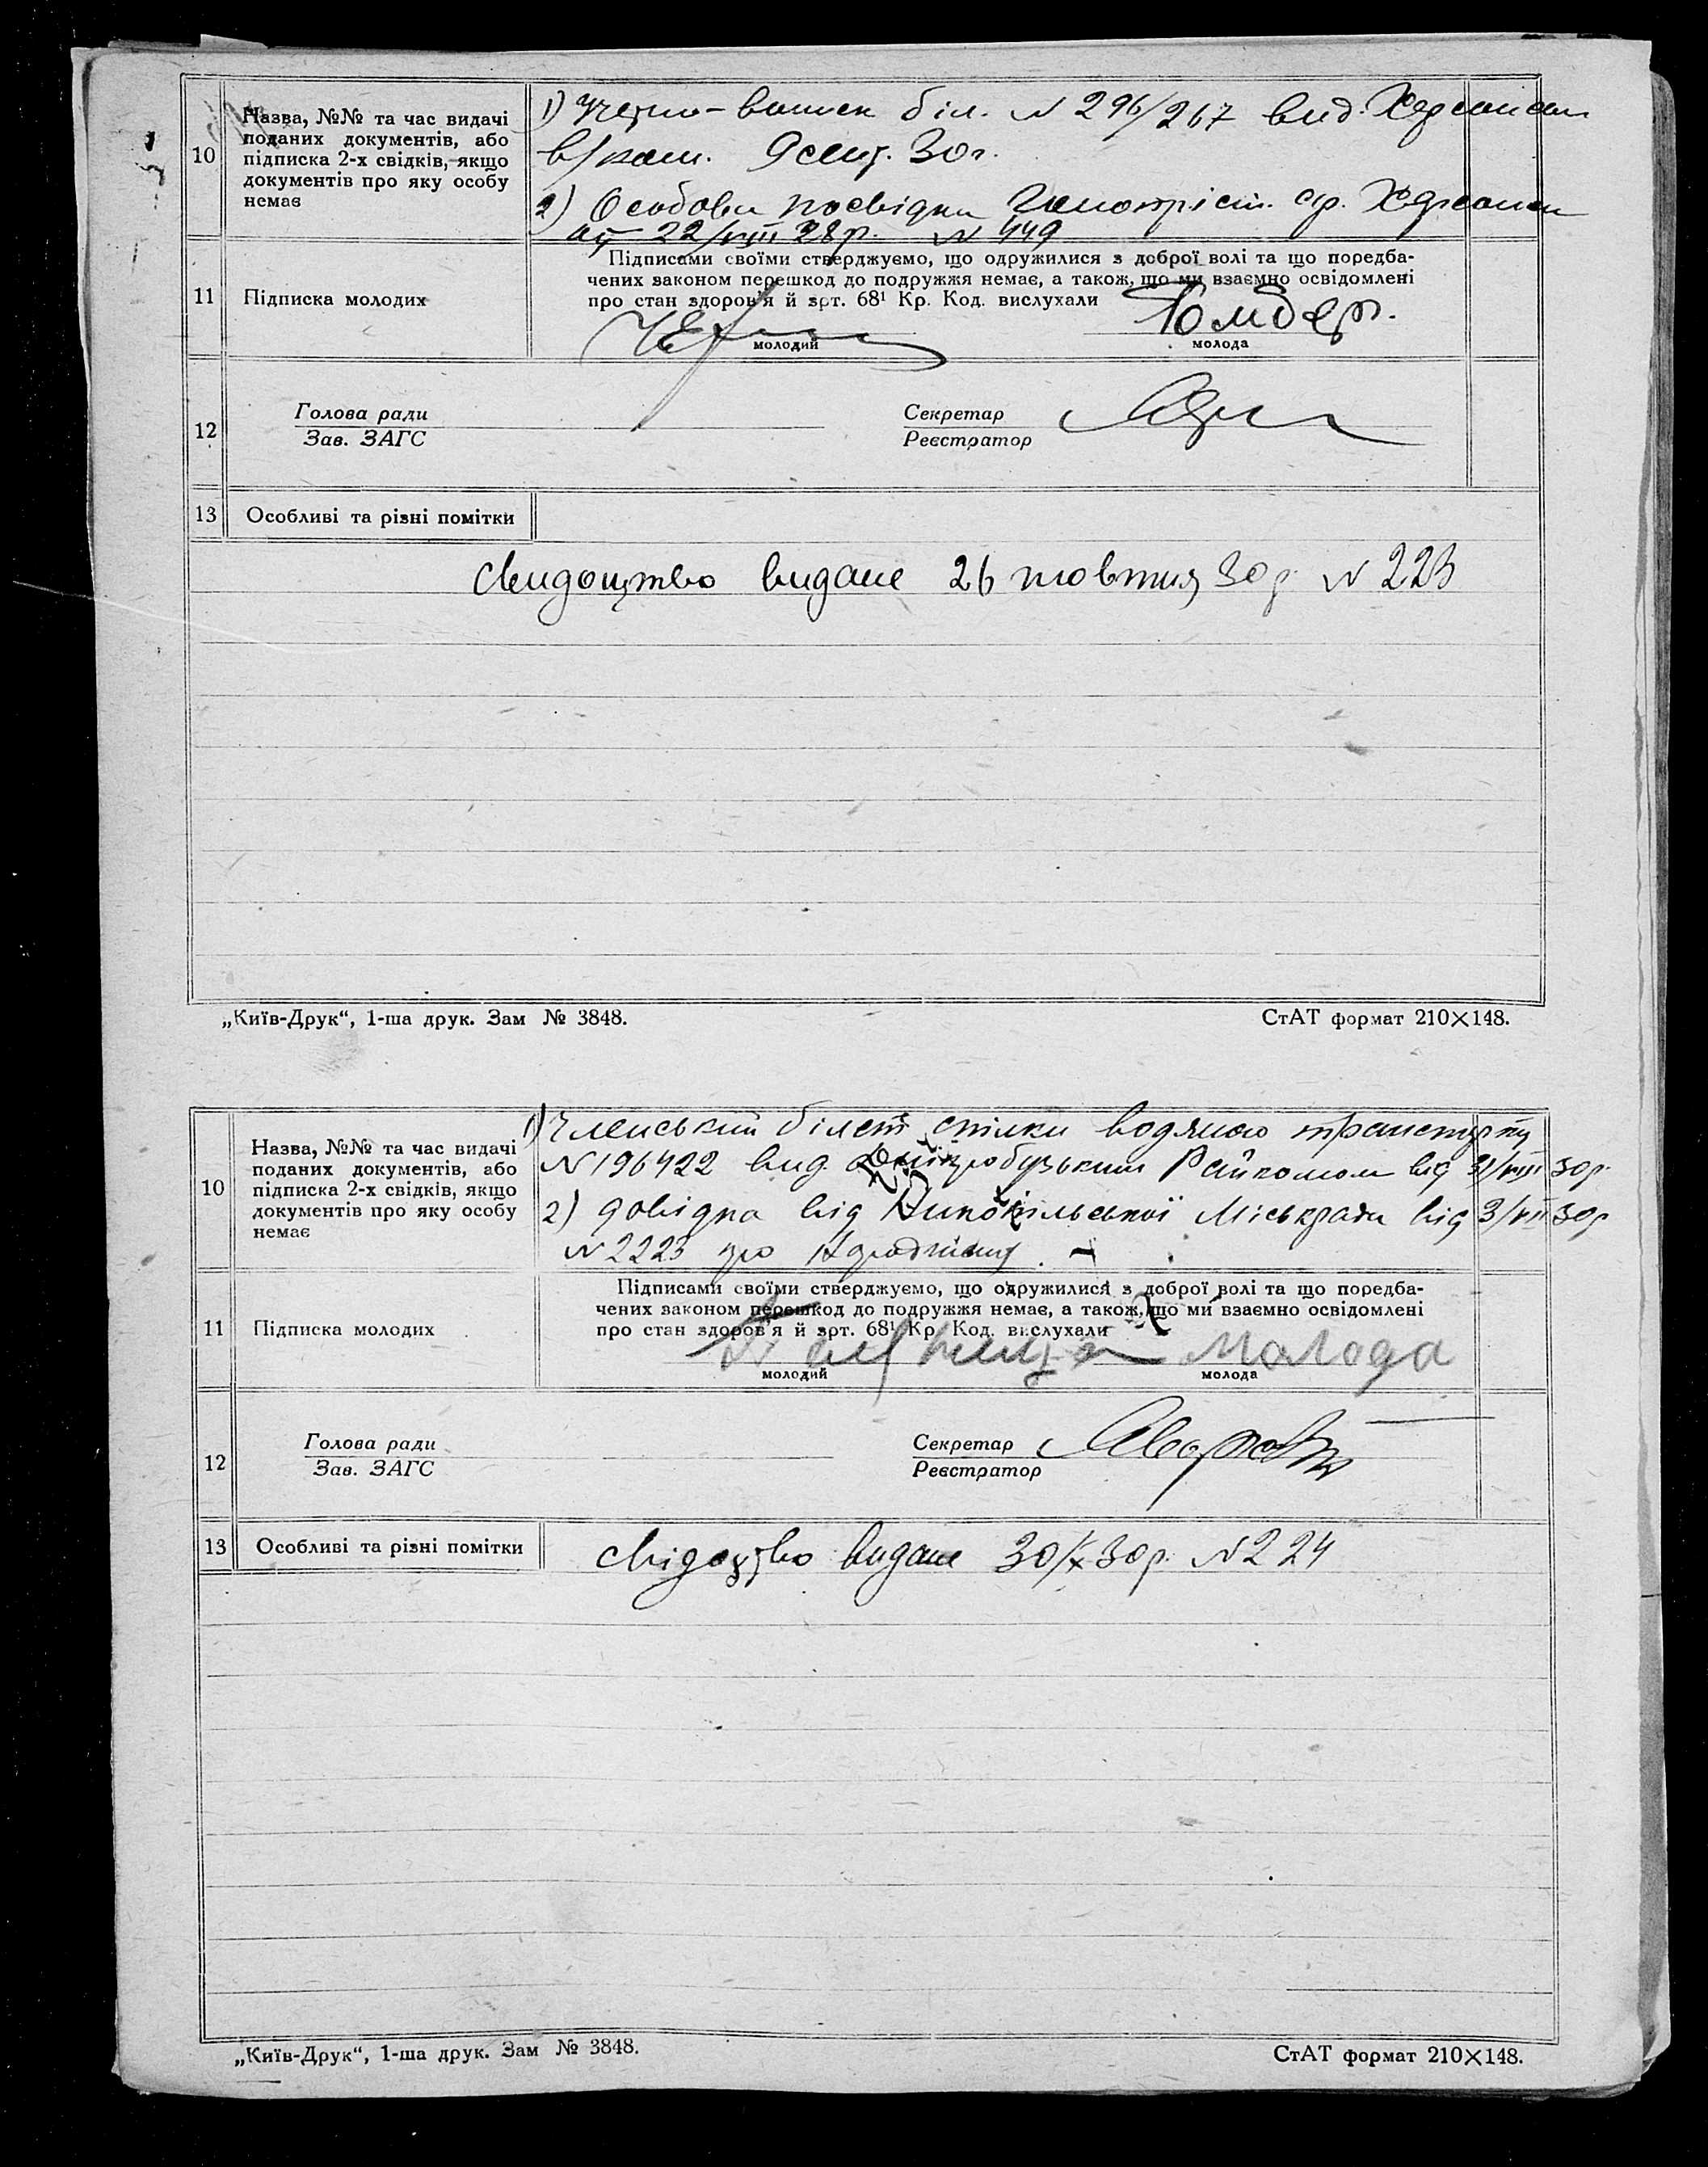 10
Назва, №№ та час видачі
поданих документів, або
підписка 2-х свідків, якщо
документів про яку особу
немає
1) біл. N 296/267 вид.
в/ком. 30 г.
2) Особова посвідка
22/VIII 28 р. N 449
11
Підписка молодих
Підписами своїми стверджуємо, що одружилися з доброї волі та що поредба-
чених законом перешкод до подружжя немає, а також, що ми взаємно освідомлені
про стан здоров'я й зрт. 68¹ Кр. Код. вислухали
молодий
молода
12
Голова ради
Зав. ЗАГС
Секретар
Реєстратор
13
Особливі та різні помітки
видане 26 жовтня 30 р. N 223
„Київ-Друк“, 1-ша друк. Зам № 3848.
СтАТ формат 210×148.
10
Назва, №№ та час видачі
поданих документів, або
підписка 2-х свідків, якщо
документів про яку особу
немає
1) Членський білет спілки водяного транспорту
N 196422 вид. Райкомом від 30 р.
2) довідка від Міськради від 3/VII 30 р
N 2223 про
11
Підписка молодих
Підписами своїми стверджуємо, що одружилися з доброї волі та що поредба-
чених законом перешкод до подружжя немає, а також, що ми взаємно освідомлені
про стан здоров'я й зрт. 68¹ Кр. Код. вислухали
Молода
молодий
молода
12
Голова ради
Зав. ЗАГС
Секретар
Реєстратор
13
Особливі та різні помітки
видане 30/X 30 р. N 224
„Київ-Друк“, 1-ша друк. Зам № 3848.
СтАТ формат 210×148.